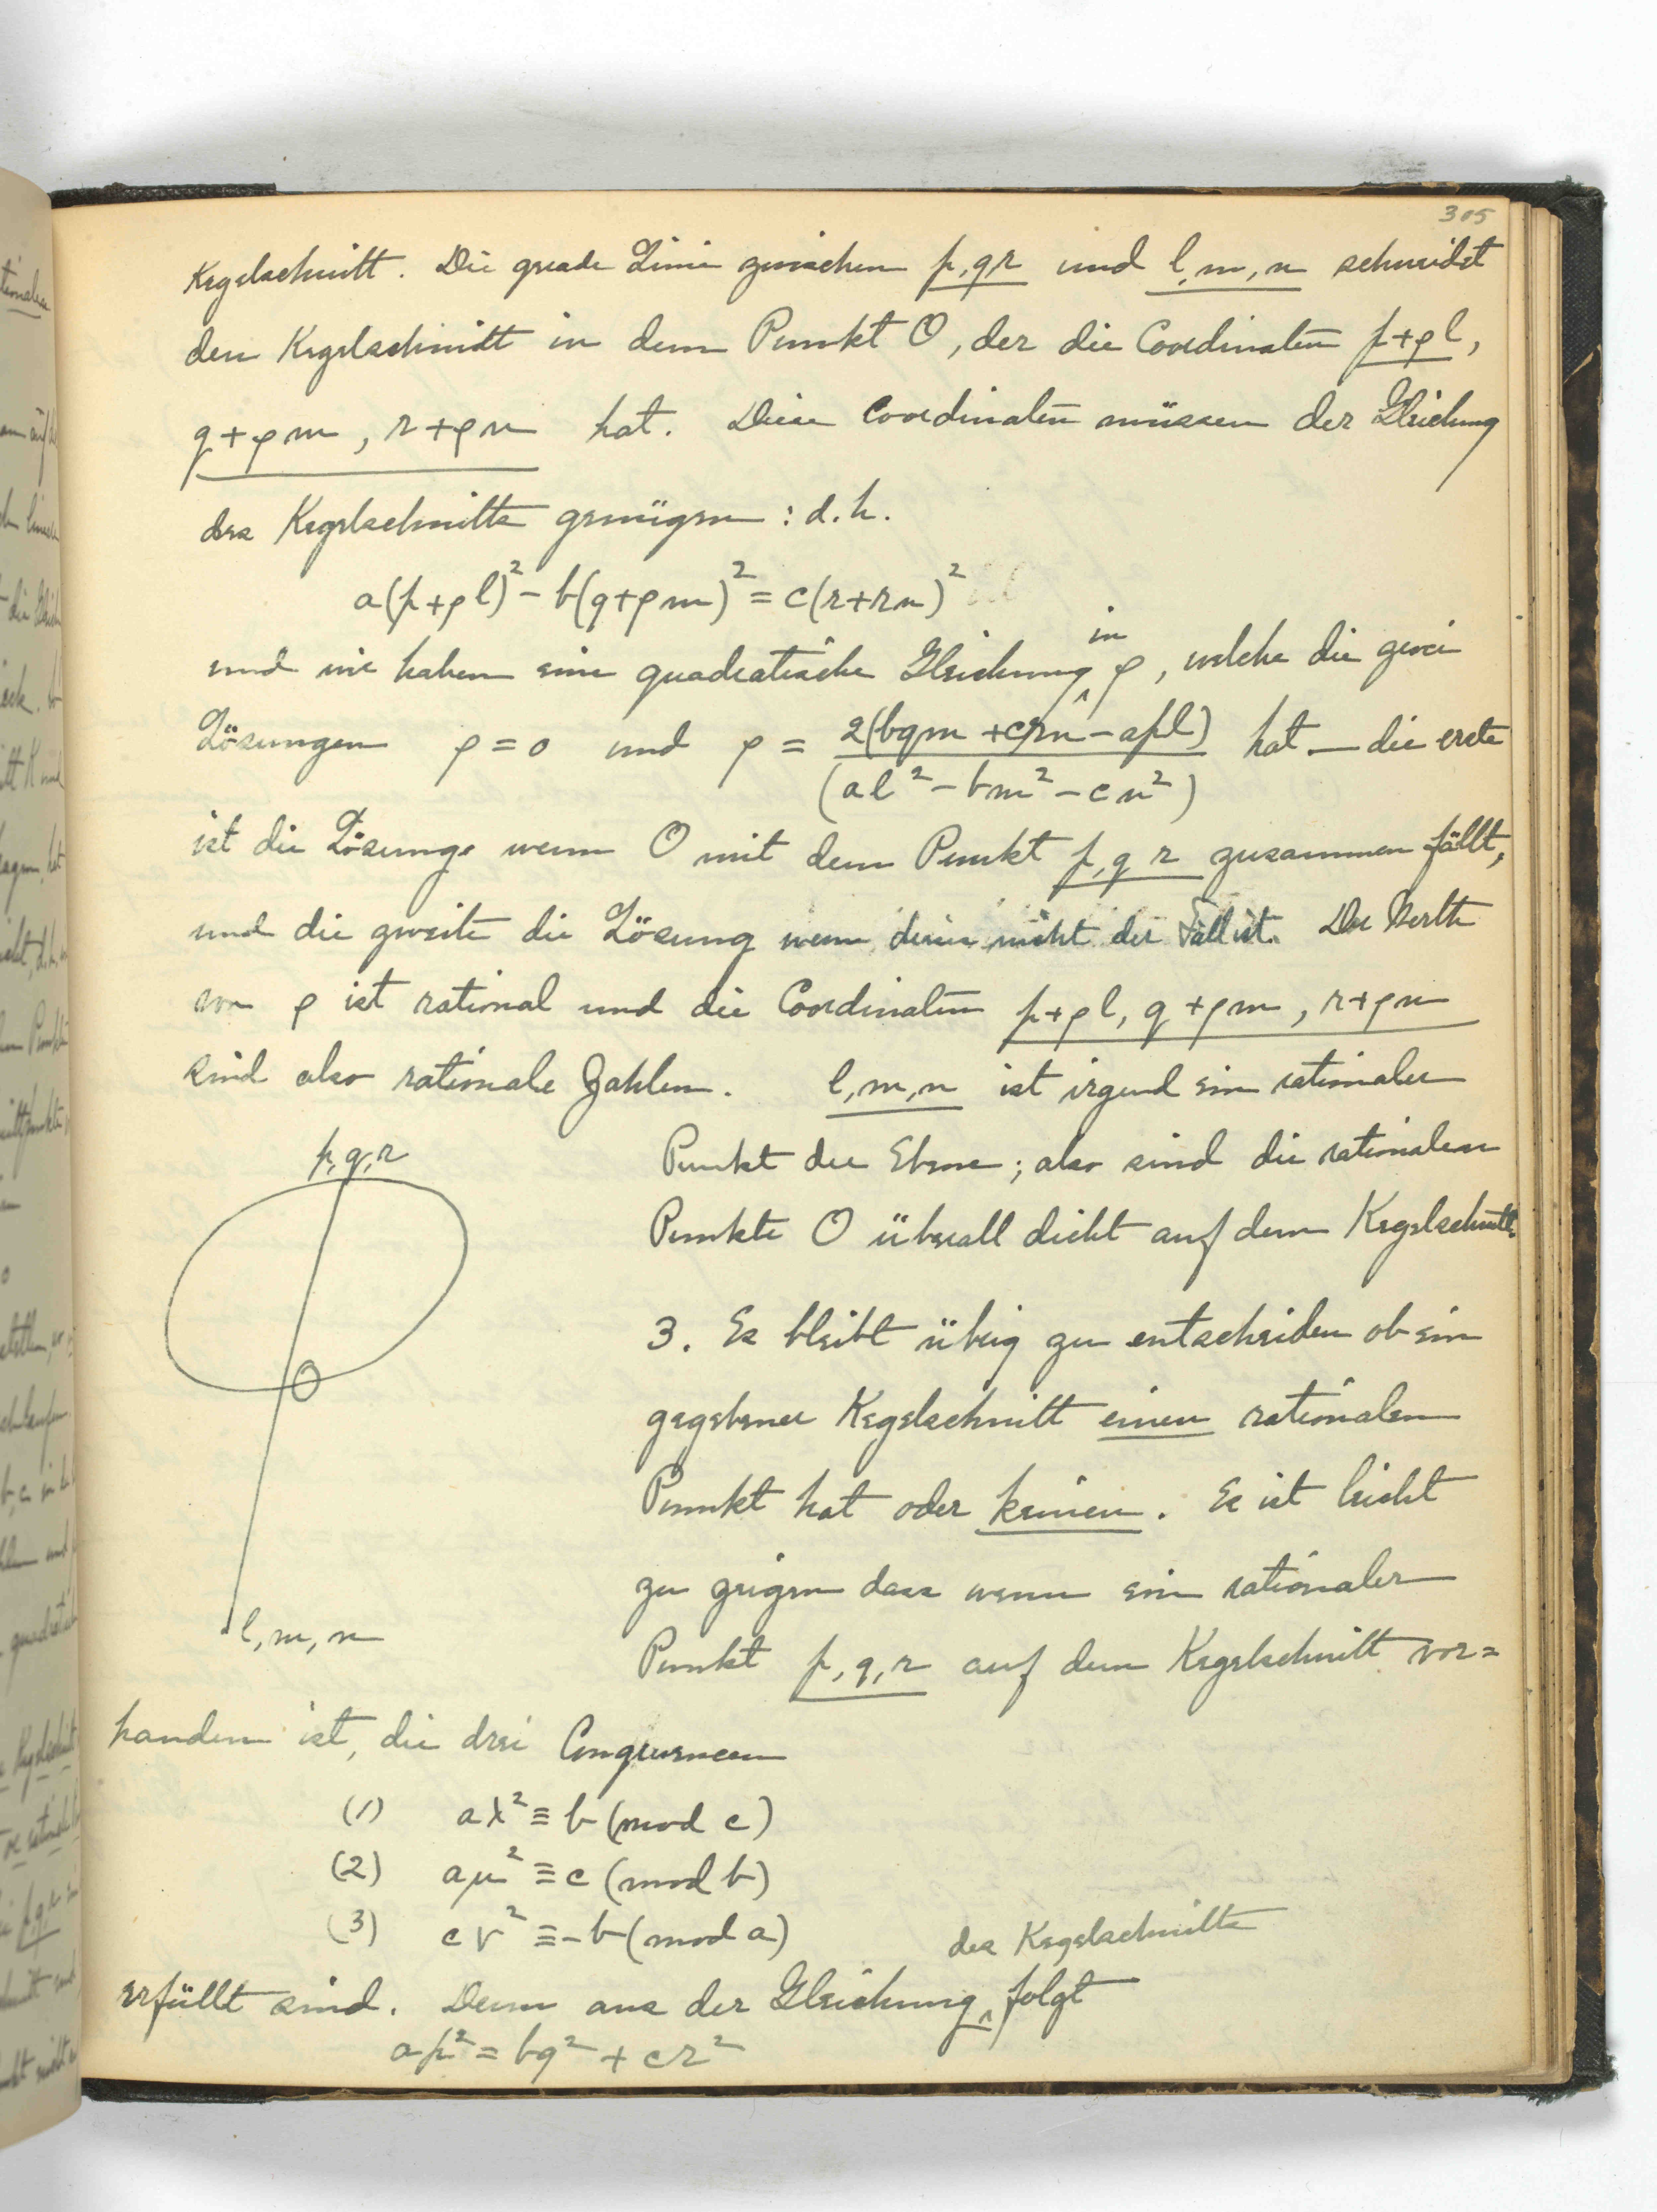 305
Kegelschnitt. Die grade Linie zwischen p,q r und l,m,n schneidet
den Kegelschnitt in dem Punkt O, der die Coordinaten p+ρl,
q+ρm, r+ρn hat. Diese Coordinaten müssen der Gleichung
des Kegelschnitts genügen : d.h.
a(p+ρl)² - b(q+ρm)² = c(r+rn)²
und wir haben eine quadratische Gleichung in ρ, welche die zwei
Lösungen ρ = 0 und ρ = 2(bqm + crn - apl) / (al² - bm² - cn²) hat — die erste
ist die Lösunge wenn O mit dem Punkt p,q r zusammen fällt,
und die zweite die Lösung wenn dieses nicht der Fall ist. Der Werth
von ρ ist rational und die Coordinaten p+ρl, q+ρm, r+ρn
sind also rationale Zahlen. l,m,n ist irgend ein rationaler
Punkt der Ebene; also sind die rationalen
Punkte O überall dicht auf dem Kegelschnitt.
p,q,r
O
l,m,n
3. Es bleibt übrig zu entscheiden ob ein
gegebener Kegelschnitt einen rationalen
Punkt hat oder keinen. Es ist leicht
zu zeigen dass wenn ein rationaler
Punkt p,q,r auf dem Kegelschnitt vor=
handen ist, die drei Congruenzen
(1) aλ² ≡ b (mod c)
(2) aμ² ≡ c (mod b)
(3) cν² ≡ -b (mod a)
erfüllt sind. Denn aus der Gleichung des Kegelschnitts folgt
ap² = bq² + cr²